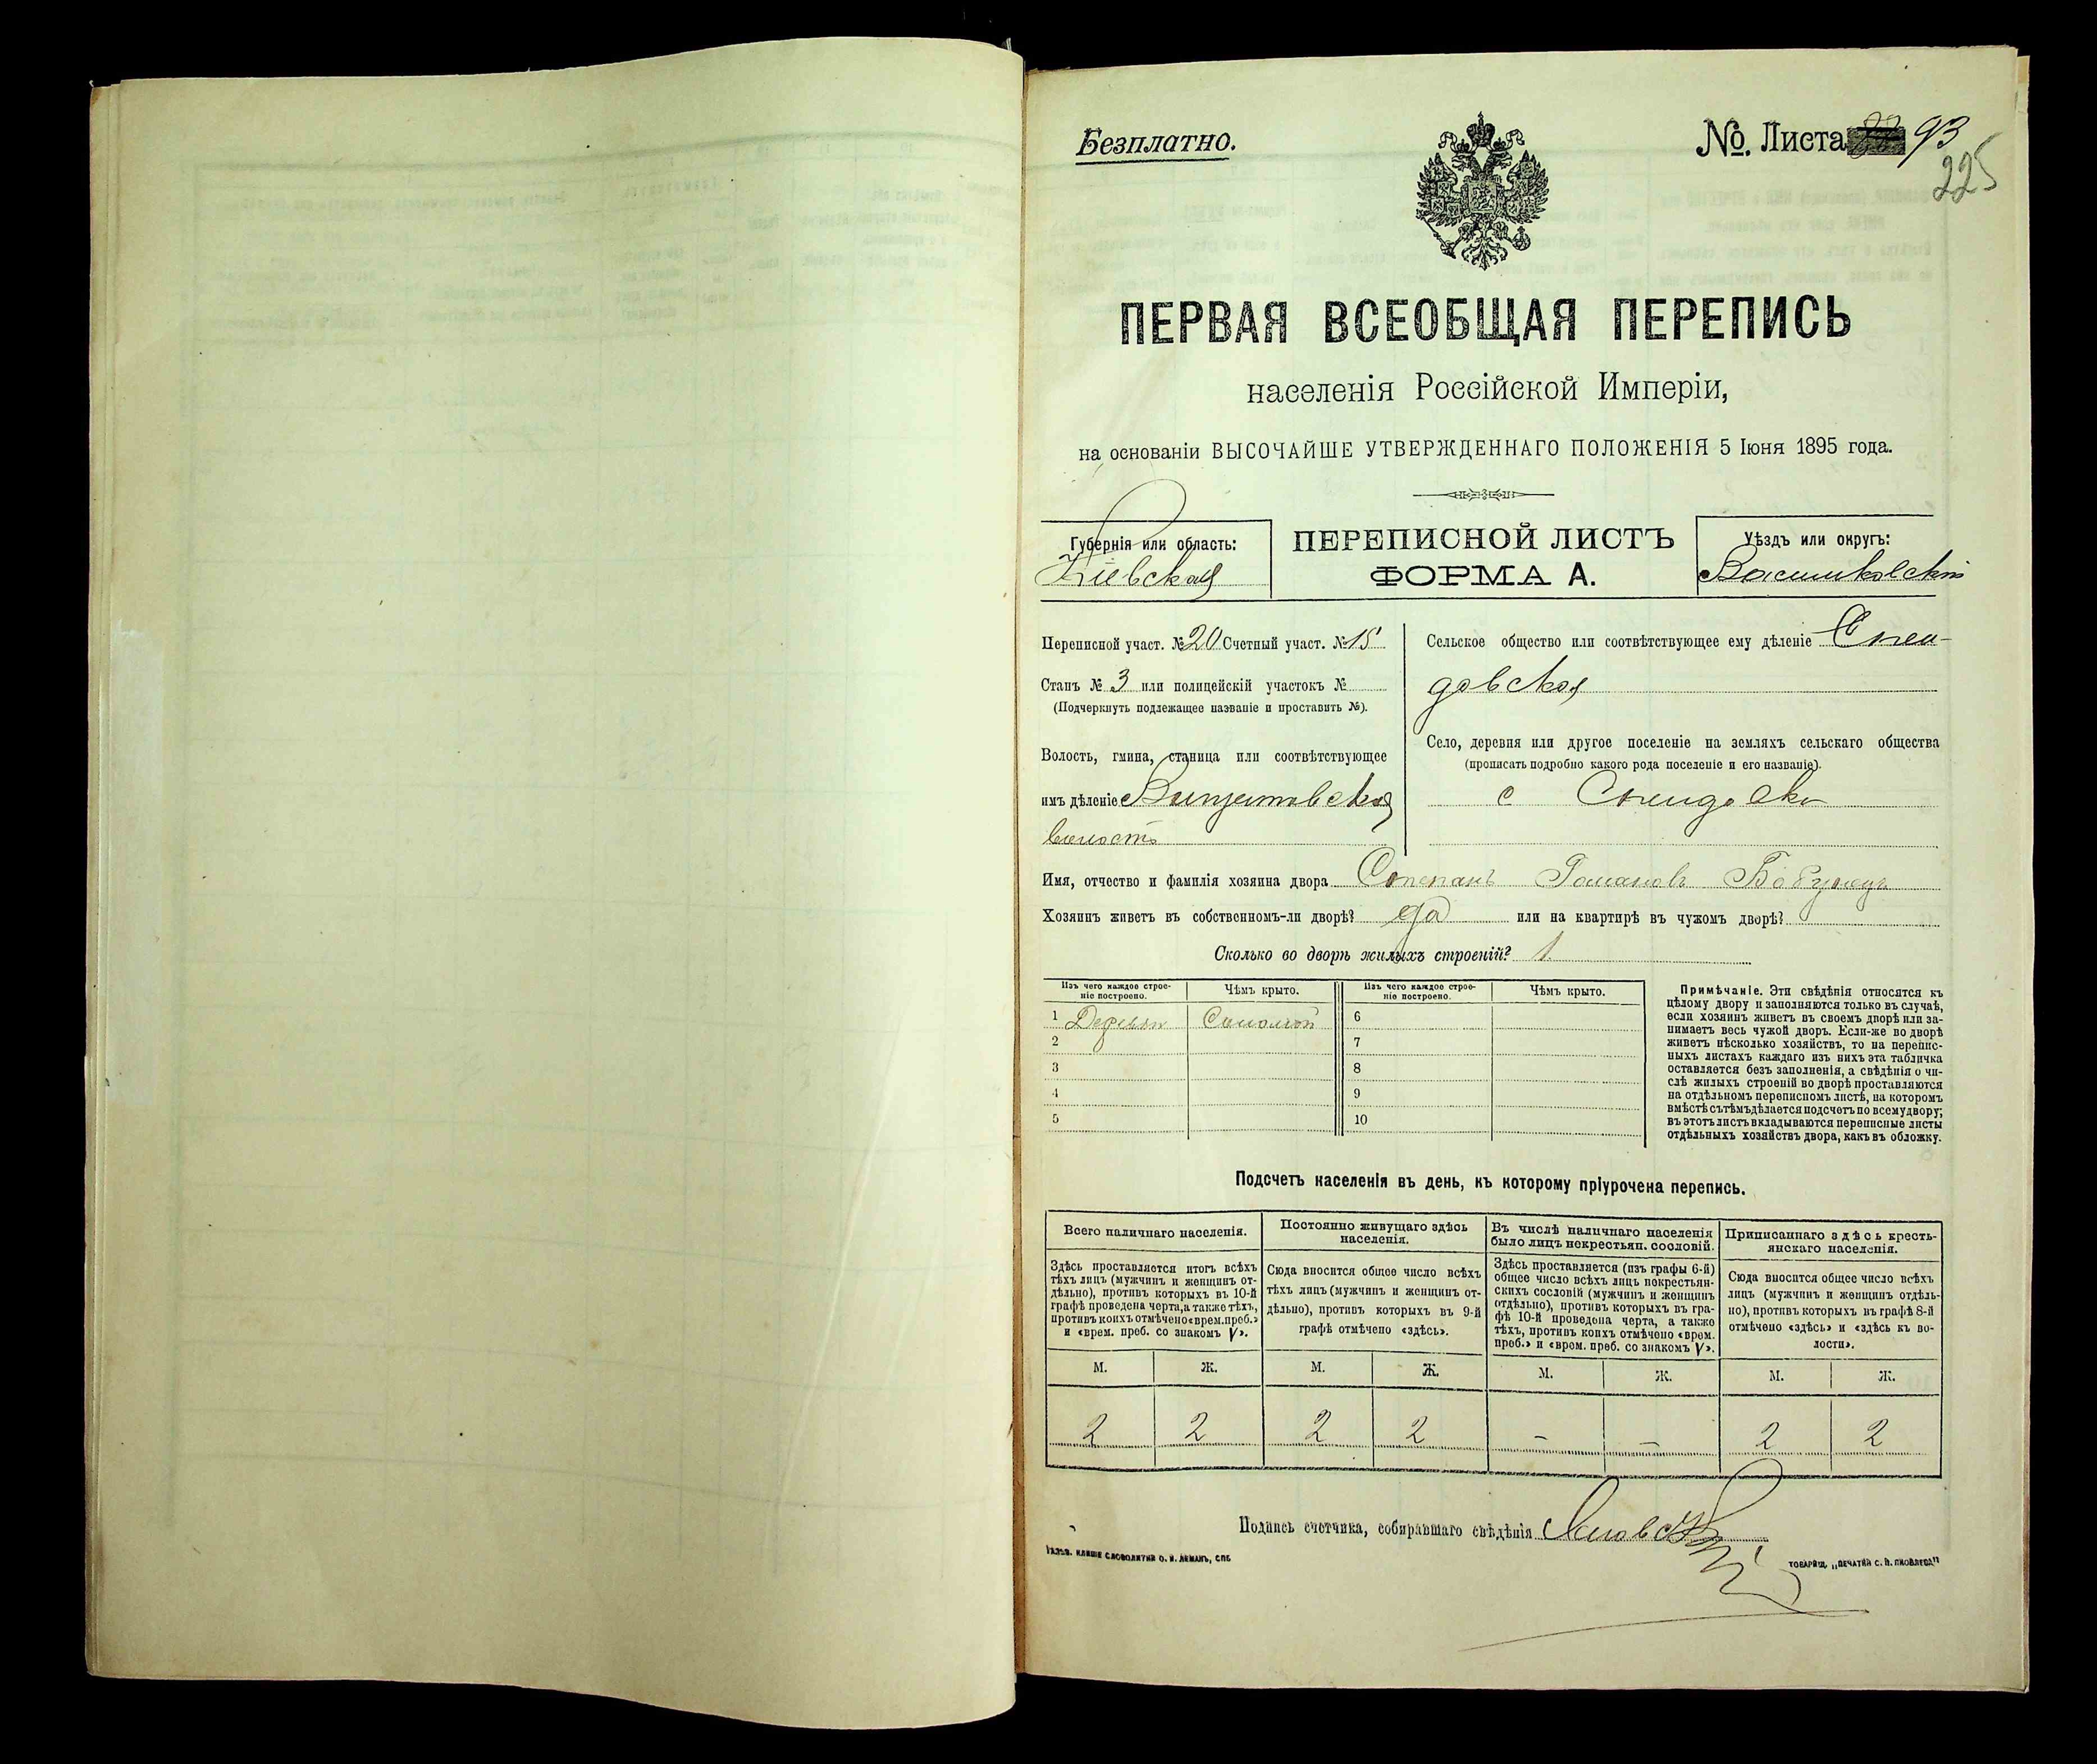 Безплатно.
№. Листа 93
225
ПЕРВАЯ ВСЕОБЩАЯ ПЕРЕПИСЬ
населенія Россійской Имперіи,
на основаніи ВЫСОЧАЙШЕ УТВЕРЖДЕННАГО ПОЛОЖЕНІЯ 5 Іюня 1895 года.
Губернія или область:
Кіевская
ПЕРЕПИСНОЙ ЛИСТЪ
ФОРМА А.
Уѣздъ или округъ:
Васильковскій
Переписной участ. № 20 Счетный участ. № 15
Станъ № 3 или полицейскій участокъ №
(Подчеркнуть подлежащее названіе и проставить №).
Волость, гмина, станица или соотвѣтствующее
имъ дѣленіе
волость
Сельское общество или соотвѣтствующее ему дѣленіе
довская
Село, деревня или другое поселеніе на земляхъ сельскаго общества
(прописать подробно какого рода поселеніе и его названіе).
с
Имя, отчество и фамилія хозяина двора Степанъ Романовъ
Хозяинъ живетъ въ собственномъ-ли дворѣ? да или на квартирѣ въ чужомъ дворѣ?
Сколько во дворѣ жилыхъ строеній? 1
Изъ чего каждое строе-
ніе построено.
Чѣмъ крыто.
Изъ чего каждое строе-
ніе построено.
Чѣмъ крыто.
1 Соломой 6
2 7
3 8
4 9
5 10
Примѣчаніе. Эти свѣдѣнія относятся къ
цѣлому двору и заполняются только въ случаѣ,
если хозяинъ живетъ въ своемъ дворѣ или за-
нимаетъ весь чужой дворъ. Если-же во дворѣ
живетъ нѣсколько хозяйствъ, то на перепис-
ныхъ листахъ каждаго изъ нихъ эта табличка
оставляется безъ заполненія, а свѣдѣнія о чи-
слѣ жилыхъ строеній во дворѣ проставляются
на отдѣльномъ переписномъ листѣ, на которомъ
вмѣстѣ съ тѣмъ дѣлается подсчетъ по всему двору;
въ этотъ листъ вкладываются переписные листы
отдѣльныхъ хозяйствъ двора, какъ въ обложку.
Подсчетъ населенія въ день, къ которому пріурочена перепись.
Всего наличнаго населенія.
Здѣсь проставляется итогъ всѣхъ
тѣхъ лицъ (мужчинъ и женщинъ от-
дѣльно), противъ которыхъ въ 10-й
графѣ проведена черта, а также тѣхъ,
противъ коихъ отмѣчено «врем. преб.»
и «врем. преб. со знакомъ V».
Постоянно живущаго здѣсь
населенія.
Сюда вносится общее число всѣхъ
тѣхъ лицъ (мужчинъ и женщинъ от-
дѣльно), противъ которыхъ въ 9-й
графѣ отмѣчено «здѣсь».
Въ числѣ наличнаго населенія
было лицъ некрестьян. сословій.
Здѣсь проставляется (изъ графы 6-й)
общее число всѣхъ лицъ некрестьян-
скихъ сословій (мужчинъ и женщинъ
отдѣльно), противъ которыхъ въ гра-
фѣ 10-й проведена черта, а также
тѣхъ, противъ коихъ отмѣчено «врем.
преб.» и «врем. преб. со знакомъ V».
Приписаннаго здѣсь кресть-
янскаго населенія.
Сюда вносится общее число всѣхъ
лицъ (мужчинъ и женщинъ отдѣль-
но), противъ которыхъ въ графѣ 8-й
отмѣчено «здѣсь» и «здѣсь къ во-
лости».
М. Ж. М. Ж. М. Ж. М. Ж.
2 2 2 2 – – 2 2
Подпись счетчика, собиравшаго свѣдѣнія
СЛОВОЛИТНИ О. И. ЛЕМАНЪ, СПБ.
ТОВАРИЩ. „ПЕЧАТНЯ С. П. ЯКОВЛЕВА"